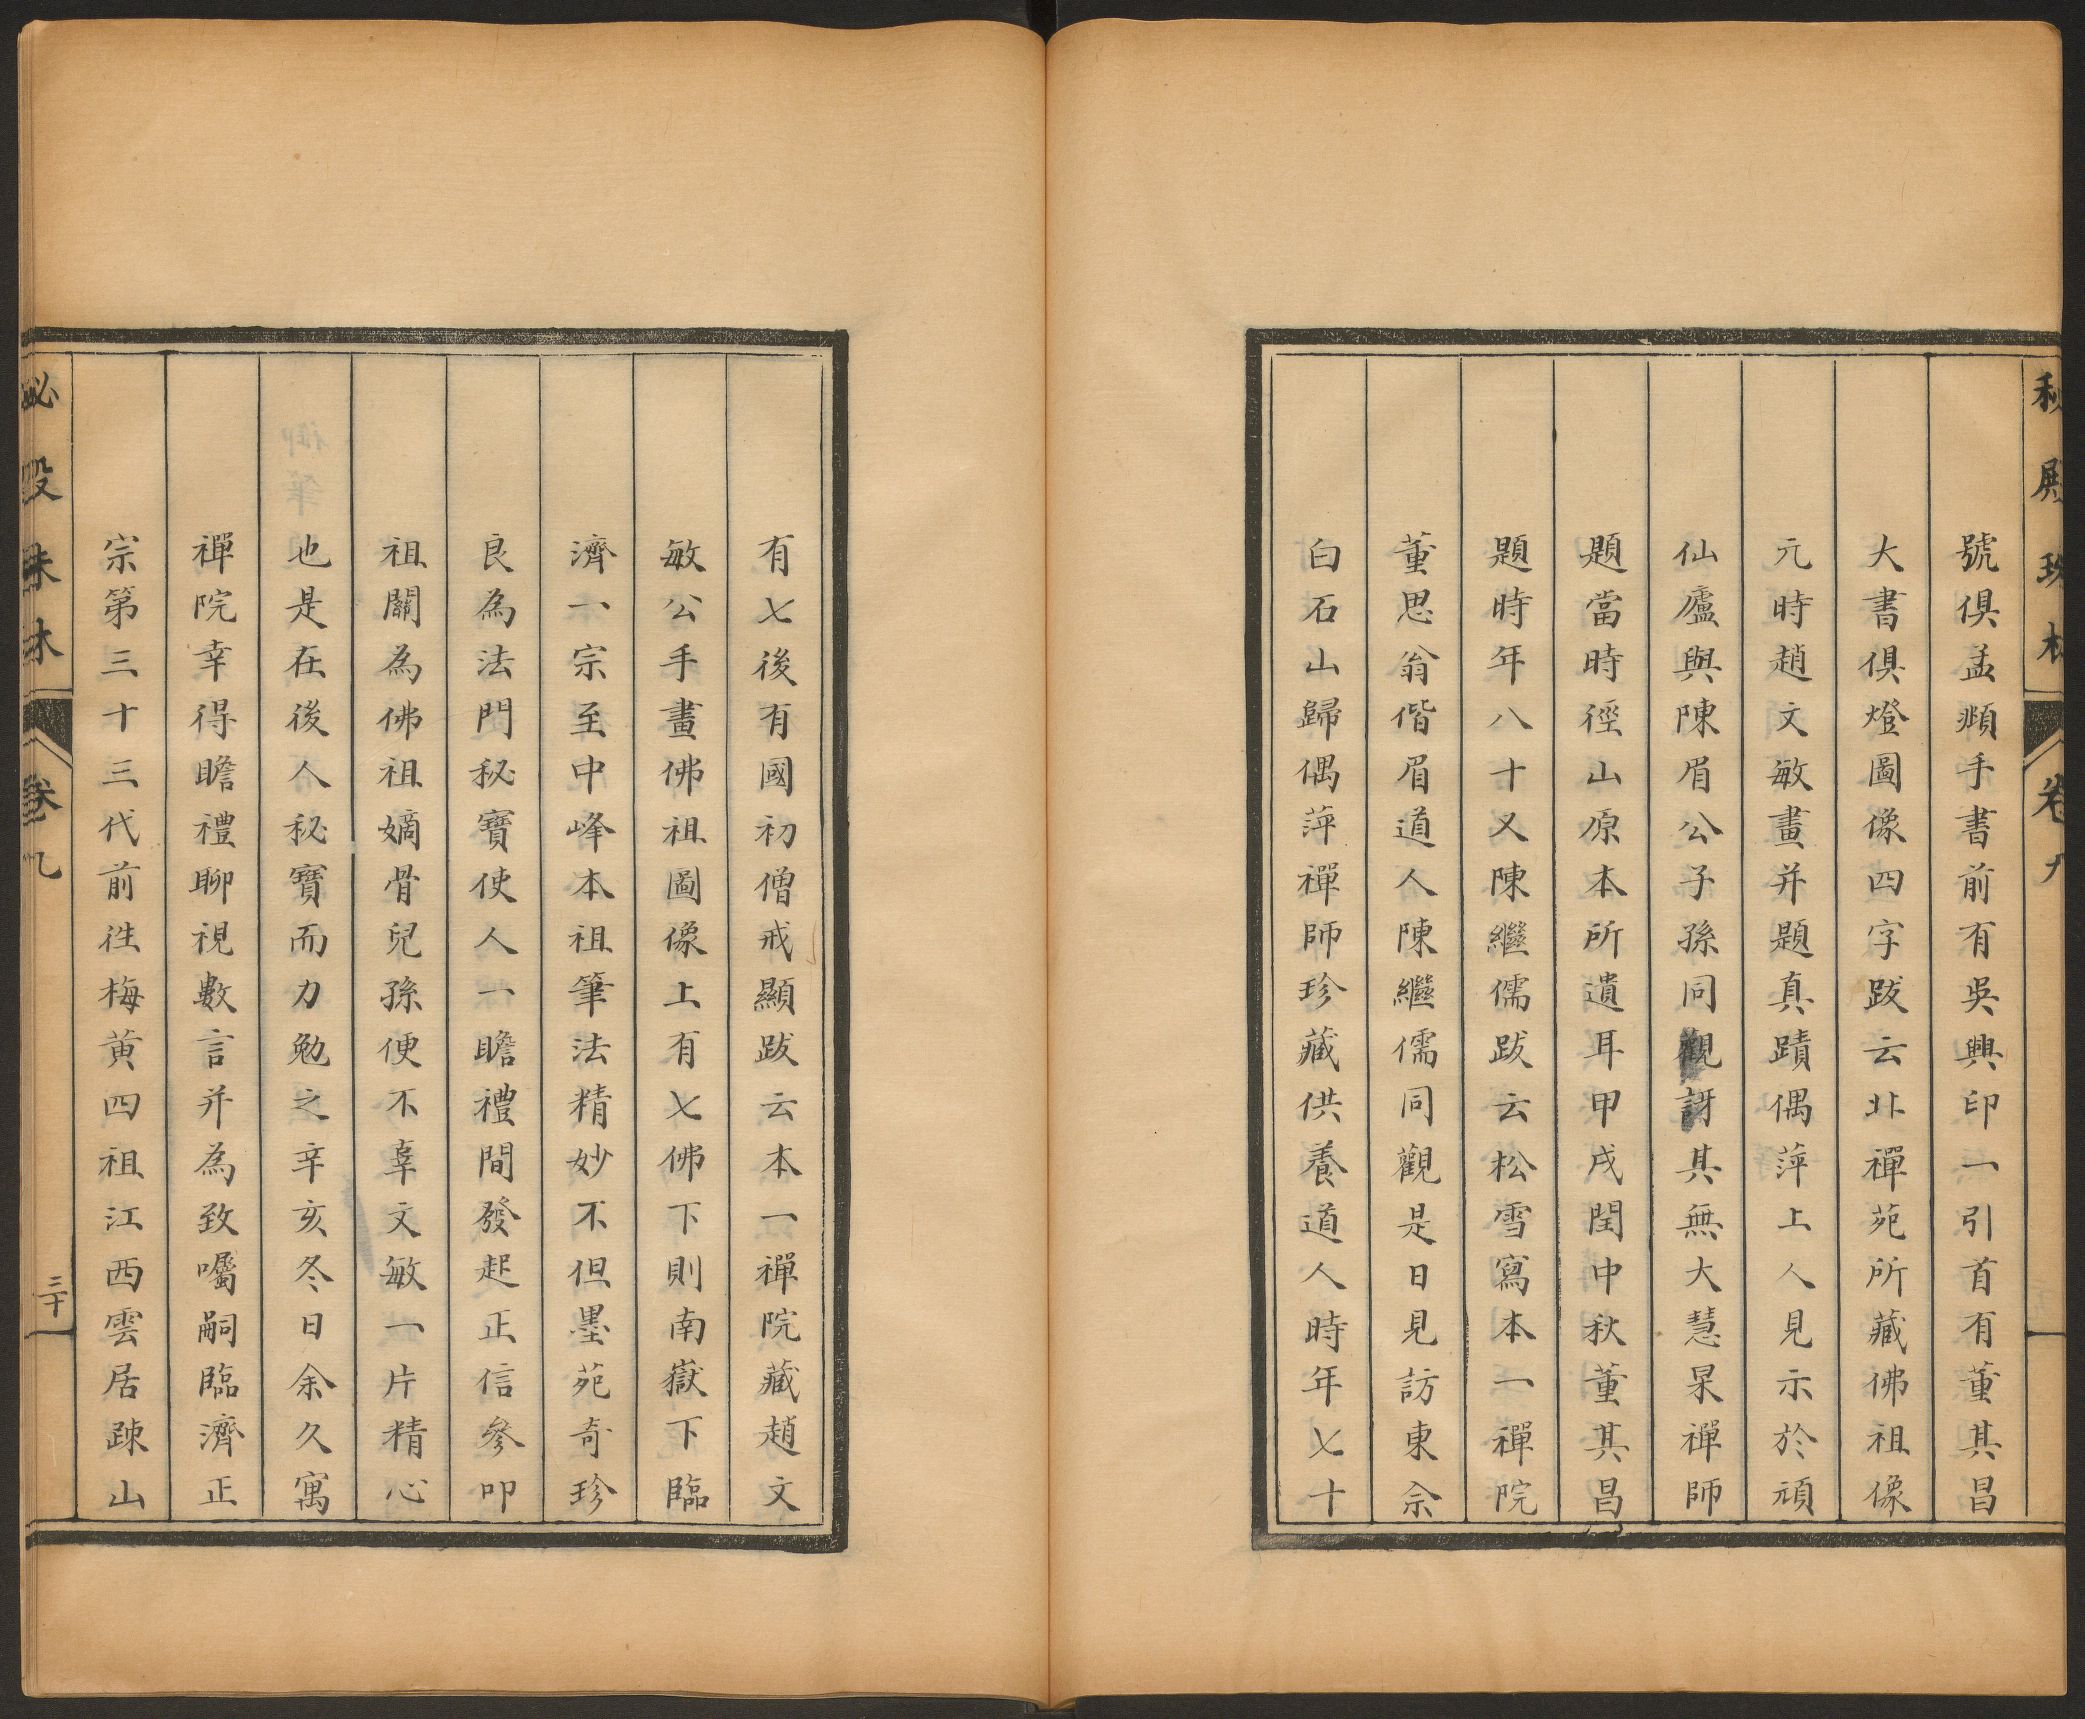 秘殿珠林
卷九
號俱孟頫手書前有吳興印一引首有董其昌
大書俱燈圖像四字跋云北禪苑所藏佛祖像
元時趙文敏畫并題真蹟偶萍上人見示於頑
仙廬與陳眉公子孫同觀訝其無大慧杲禪師
題當時徑山原本所遺耳甲戌閏中秋董其昌
題時年八十又陳繼儒跋云松雪寫本一禪院
董思翁偕眉道人陳繼儒同觀是日見訪東佘
白石山歸偶萍禪師珍藏供養道人時年七十
有七後有國初僧戒顯跋云本一禪院藏趙文
敏公手畫佛祖圖像上有七佛下則南嶽下臨
濟一宗至中峰本祖筆法精妙不但墨苑奇珍
良為法門秘寶使人一瞻禮間發起正信參叩
祖關為佛祖嫡骨兒孫便不辜文敏一片精心
也是在後人秘寶而力勉之辛亥冬日余久寓
禪院幸得瞻禮聊視數言并為致囑嗣臨濟正
宗第三十三代前住梅黃四祖江西雲居疎山
秘殿珠林
卷九
三十